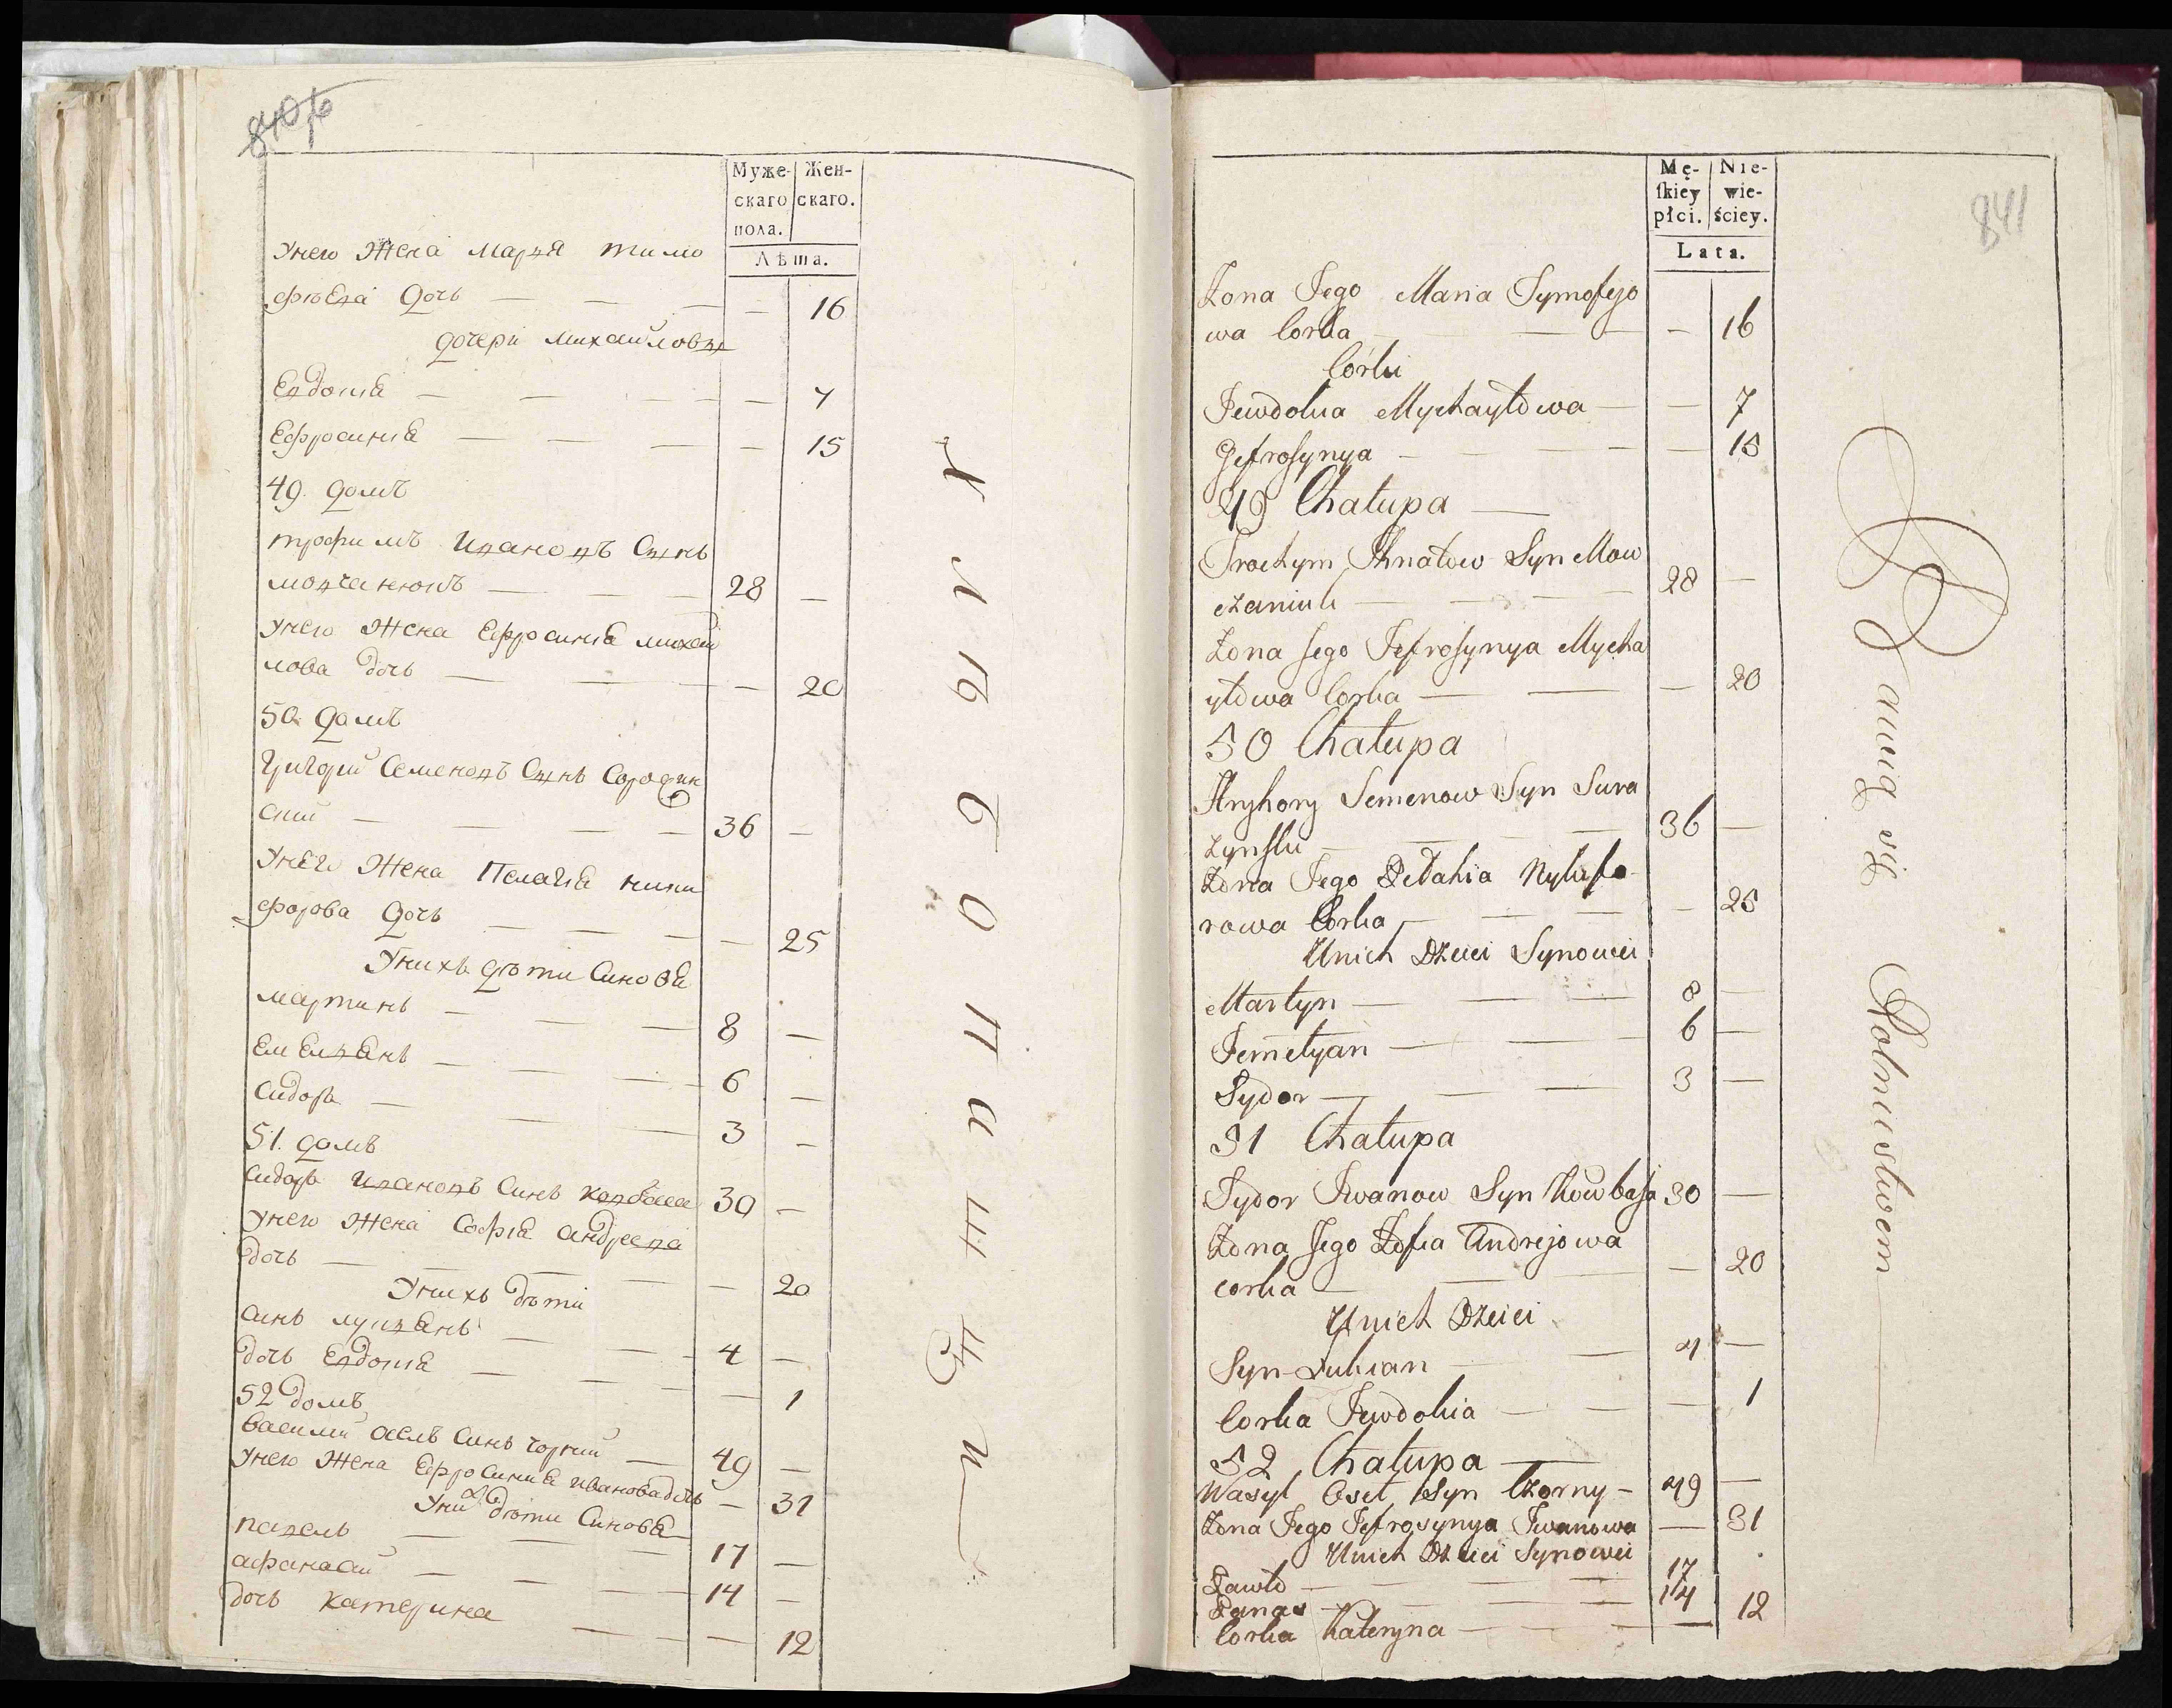 840об
Муже- Жен-
скаго скаго.
пола.
Лѣта.
Унего Жена Марья тимо
фѣева дочь — — — — 16
дочери михайловы
Евдокиа — — — — 7
Ефросиния — — — — 15
49. домъ
трофимъ Ивановъ Сынъ
мовчанюкъ — — — 28 —
Унего Жена Ефросиния михай
лова дочь — — — — 20
50. домъ
Григорий Семеновъ Сынъ
ский — — — — 36 —
Унего Жена Пелагия ники
форова дочь — — — — 25
Унихъ дѣти Синовя
мартинъ — — — 8 —
Емелянъ — — — 6 —
Сидоръ — — — 3 —
51. домъ
Сидоръ Ивановъ Синъ Ковбаса 30 —
Унего Жена София Андреева
дочь — — — — 20
Унихъ дѣти
Синъ лукянъ — — 4 —
дочь Евдокиа — — — — 1
52 домъ
Василий Синъ чорний — 49 —
Унего Жена Ефросиния Ивановадочь — 31
Уних дѣти Синовя
павелъ — — — 17 —
афанасий — — — 14 —
дочь катерина — — 12
841
Mę- Nie-
skiey wie-
płci. ściey.
Lata.
Żona Jego Maria Tymofejo
wa Corka — — — 16
Córki
Jewdokia Mychayłowa — — 7
Jefrosynya — — — — 15
49 Chałupa —
Trochym Syn Mow
czaniuk — — — 28 —
Żona Jego Jefrosynya Mycha
yłowa Corka — — — 20
50 Chałupa
Hryhory Semenow Syn Sura
żynski — — — 36 —
Żona Jego Pełahia Nykifo-
rowa Corka — — — — 25
Unich Dzieci Synowei
Martyn — — — 8 —
Jemełyan — — 6 —
Sydor — — — 3 —
51 Chałupa
Sydor Iwanow Syn Kowbasa 30 —
Żona Jego Zofia Andrejowa
corka — — — — 20
Unich Dzieci
Syn Łukian — — 4 —
Corka Jewdokia — — — 1
52 Chałupa —
Wasyl Syn Czorny — 49 —
Żona Jego Jefrosynya Iwanowa — 31
Unich Dzieci Synowei
Pawło — — — 17
Panas — — — 14
Corka Kateryna — — — — 12
Rania się Rolnictwem